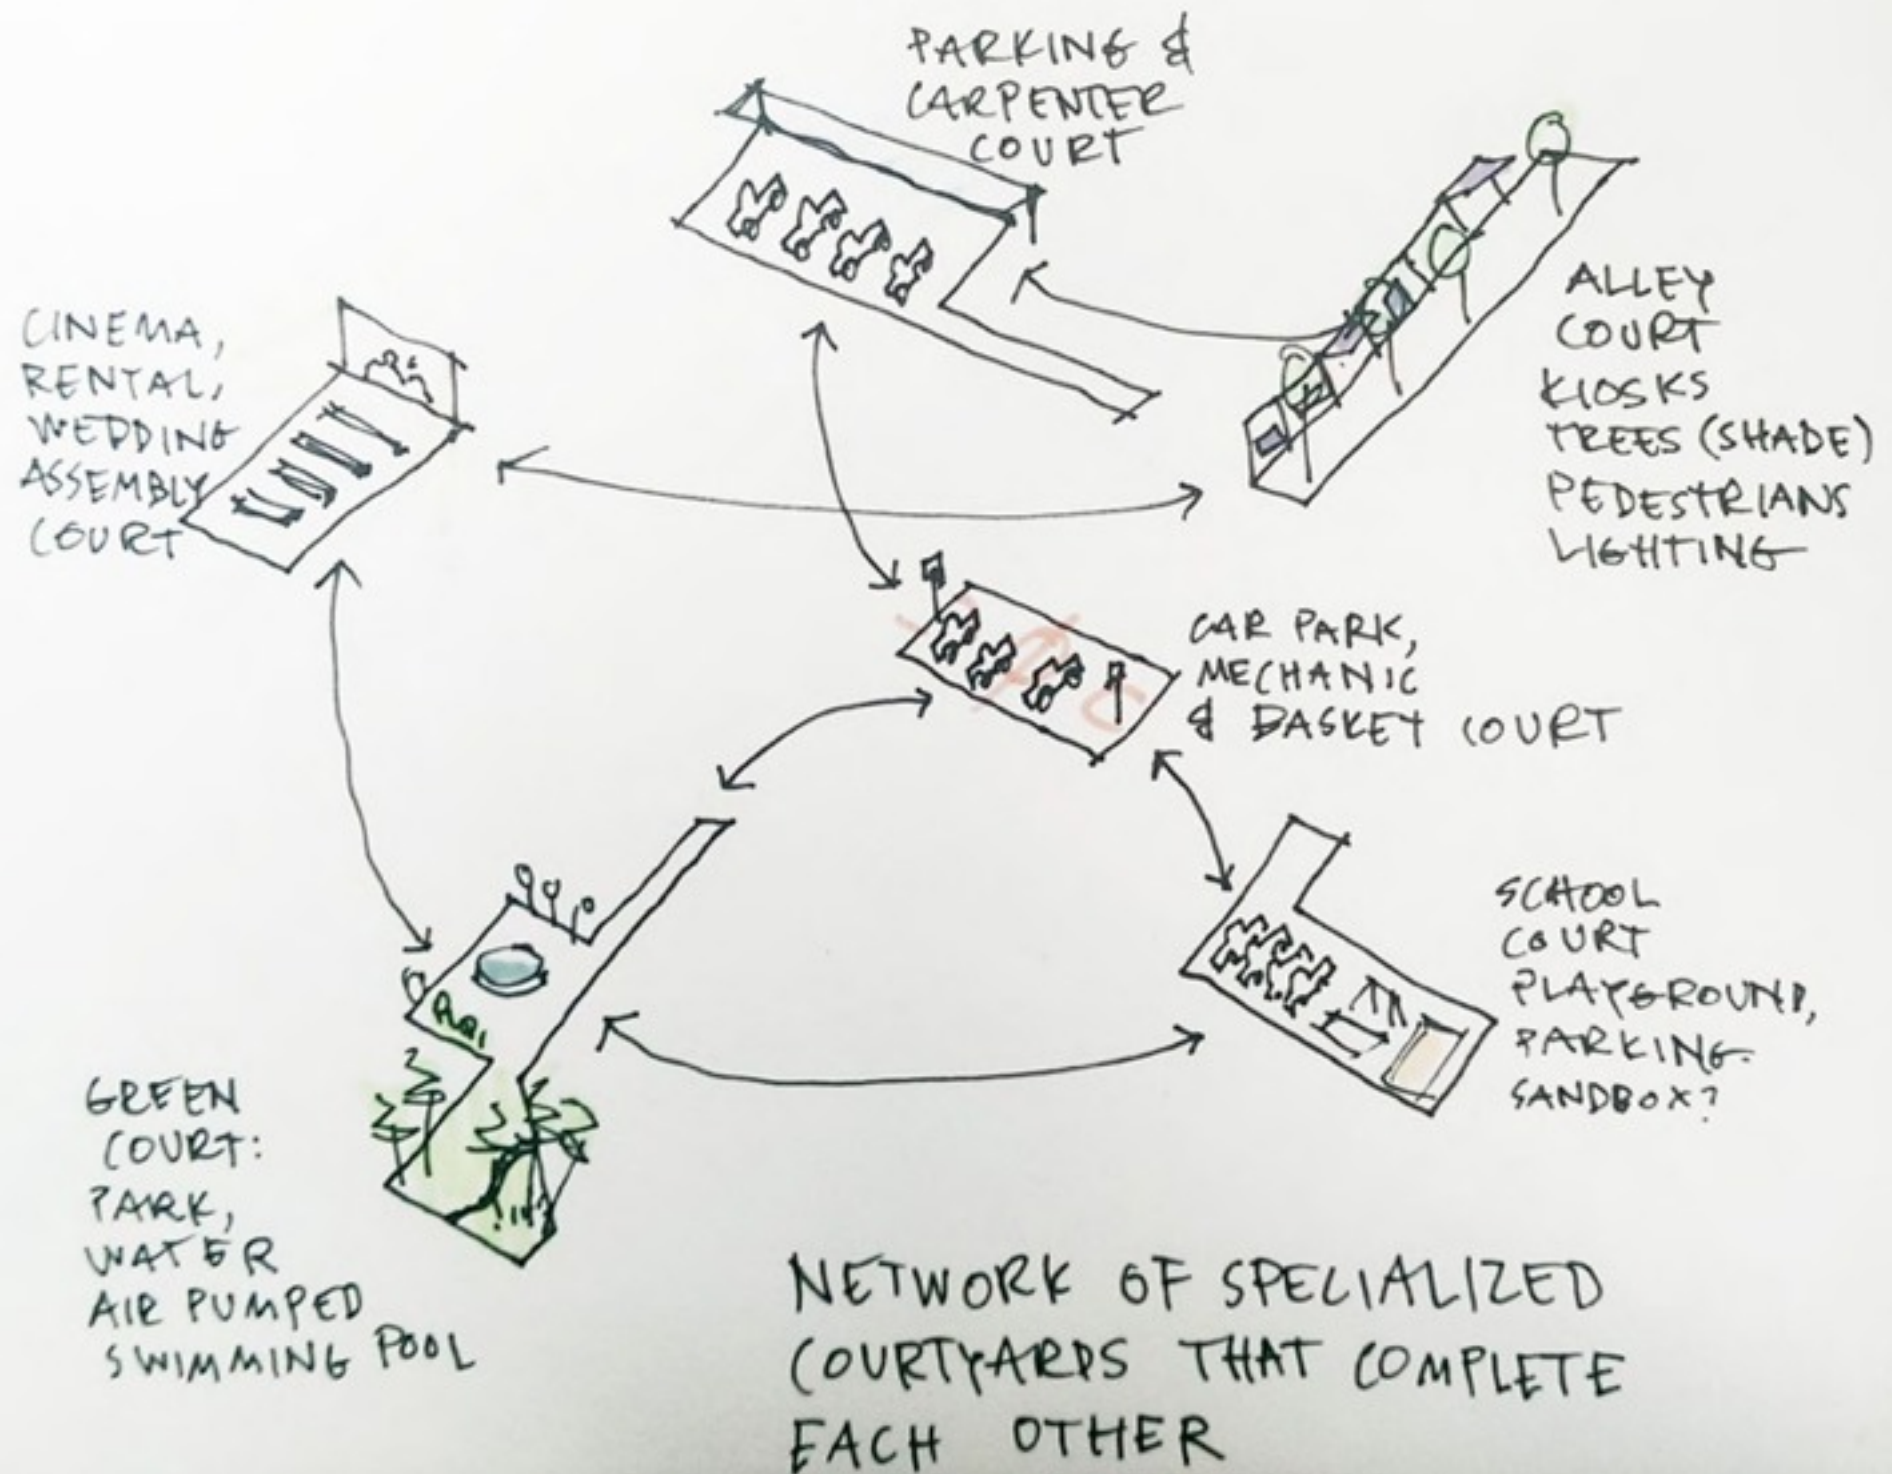 PARKING &
CARPENTER
COURT
CINEMA,
RENTAL,
WEDDING
ASSEMBLY
COURT
ALLEY
COURT
KIOSKS
TREES (SHADE)
PEDESTRIANS
LIGHTING
CAR PARK,
MECHANIC
& BASKET COURT
SCHOOL
COURT
PLAYGROUND,
PARKING.
SANDBOX?
GREEN
COURT:
PARK,
WATER
AIR PUMPED
SWIMMING POOL
NETWORK OF SPECIALIZED
COURTYARDS THAT COMPLETE
EACH OTHER